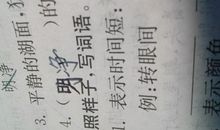 3. 平静的湖面,
4. (明净)的
照样子,写词语。
1. 表示时间短:
例:转眼间
表示颜色